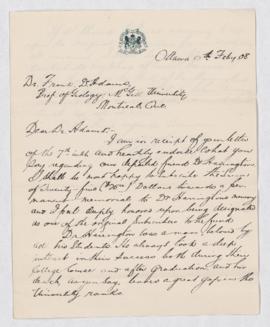 Ottawa Feby 08
Dr. Frank D. Adams,
Prof of Geology McGill University
Montreal, Que.
Dear Dr Adams:-
I am in receipt of your letter
of the 7th inst and heartily endorse what you
say regarding our friend Dr Harrington
I shall be most happy to subscribe the sum
of Twenty five Dollars towards a per-
manent memorial to Dr Harrington's memory
and I feel honored upon being designated
as one of the original subscribers to the fund.
Dr Harrington was a man beloved by
all his students. He always took a deep
interest in their success both during their
College Course and after graduation and his
death leaves a great gap in the
University ranks.